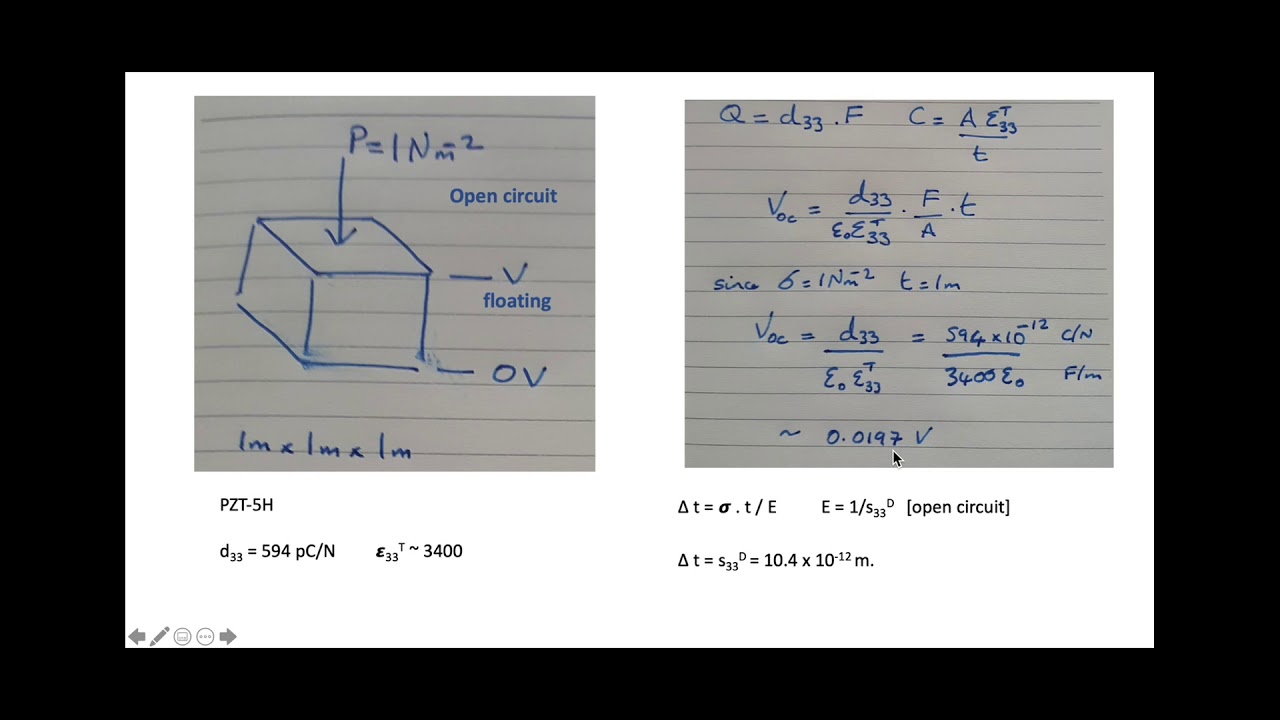 P = 1 Nm⁻²
Open circuit
V
floating
0V
1m x 1m x 1m
PZT-5H
d₃₃ = 594 pC/N   ε₃₃ᵀ ~ 3400
Q = d₃₃ . F   C = A ε₃₃ᵀ / t
V_oc = d₃₃ / ε₀ε₃₃ᵀ . F / A . t
since σ = 1Nm⁻²   t = 1m
V_oc = d₃₃ / ε₀ ε₃₃ᵀ = 594 x 10⁻¹² / 3400 ε₀   C/N   F/m
~ 0.0197 V
Δ t = σ . t / E   E = 1/s₃₃ᴰ   [open circuit]
Δ t = s₃₃ᴰ = 10.4 x 10⁻¹² m.